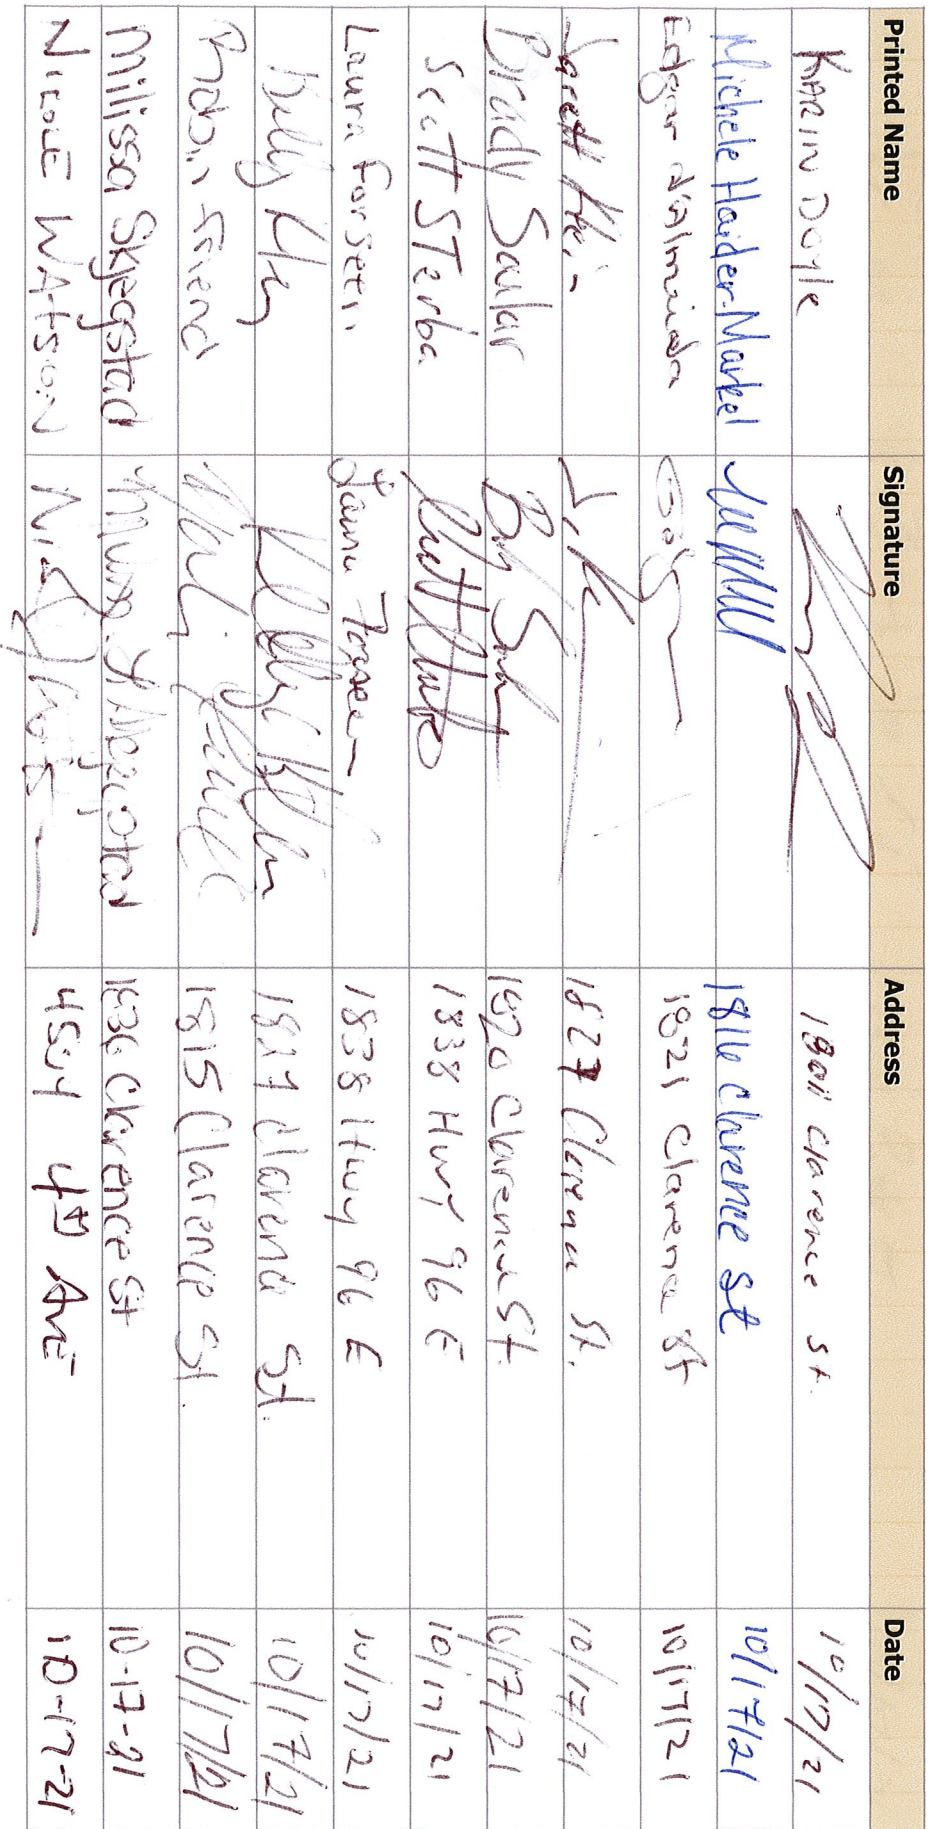 Printed Name Signature Address Date
KARIN DOYLE 1801 Clarence St. 10/17/21
Michele Haider-Markel 1816 Clarence St 10/17/21
Edgar dAlmeida 1821 Clarence St 10/17/21
Jarett 1827 Clarence St. 10/17/21
Brady Saular 1820 Clarence St. 10/17/21
Scott STerba 1838 HWY 96 E 10/17/21
Laura Forseen Laura Forseen 1838 Hwy 96 E 10/17/21
Kelly 1827 Clarence St. 10/17/21
Robin Friend 1815 Clarence St. 10/17/21
Milissa Skjegstad Milissa Skjegstad 1836 Clarence St 10-17-21
NICOLE WATSON 4th AVE 10-17-21